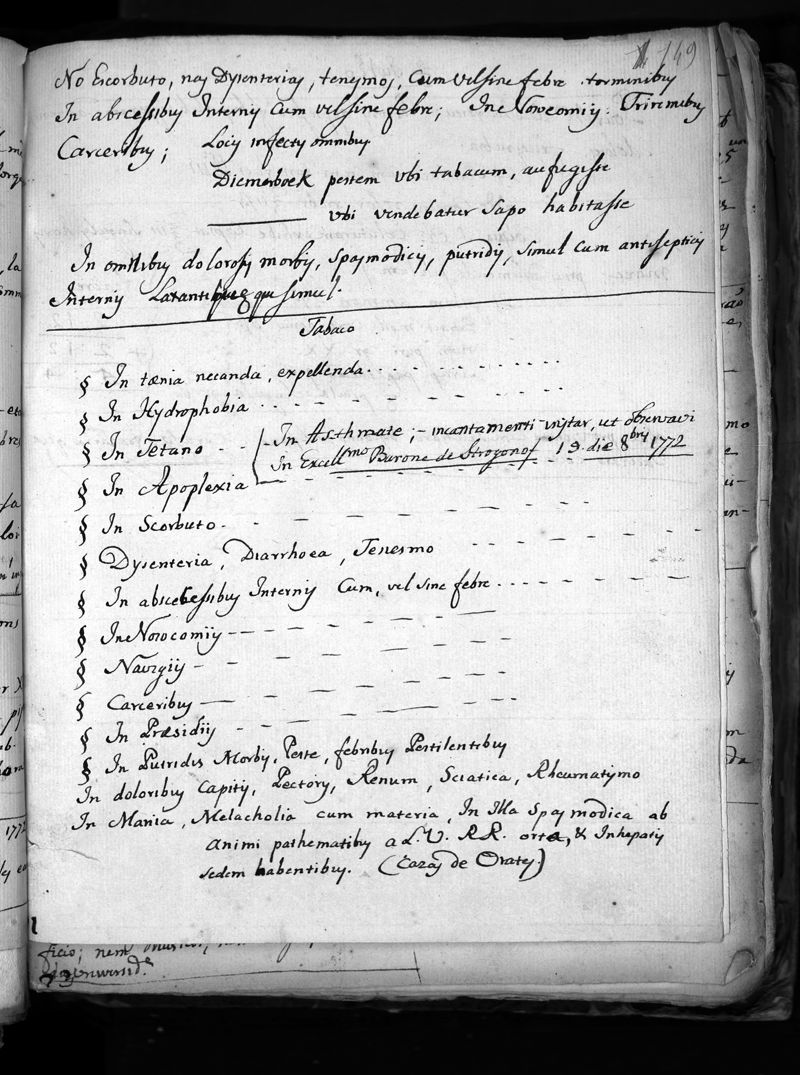 149
No Escorbuto, nas Dysenterias, tenesmos, Cum vel sine febre torminibus
In abscessibus Internis Cum vel sine febre; In Nosocomiis Triremibus
Carceribus; Locis infectis omnibus
Diemerboek pestem ubi tabacum, aufugisse
ubi vendebatur sapo habitasse
In omnibus dolorosis morbis, spasmodicis, putridis, simul cum antisepticis
Internis Laxantibusque simul.
Tabaco
§ In tænia necanda, expellenda
§ In Hydrophobia
§ In Tetano - - In Asthmate; - incantamenti instar, ut observavi
In Excell.mo Barone de Strogonof 19 die 8bris 1772
§ In Apoplexia
§ In Scorbuto
§ Dysenteria, Diarrhoea, Tenesmo
§ In abscessibus Internis Cum, vel sine febre
§ In Nosocomiis
§ Navigiis
§ Carceribus
§ In Præsidiis
§ In Putridis Morbis, Peste, febribus Pestilentibus
In doloribus Capitis, Pectoris, Renum, Sciatica, Rheumatismo
In Mania, Melacholia cum materia, In Illa Spasmodica ab
Animi pathematibus a L. V. RR. orta, & In hepatis
sedem habentibus. (Cazas de Orates)
ficio; nem